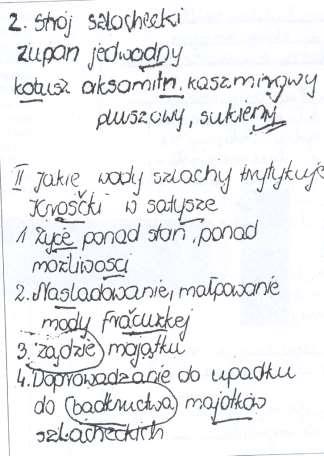 2. Strój szlachecki
żupan jedwadny
kotusz aksamitn, kaszmirowy
pluszowy, sukienny
II Jakie wady szlachy krytykuje
Krośčki w satysze
1 Życė ponad stan, ponad
możliwosci
2. Nasladowanie, małpowanie
mody fračuzkej
3. żądzie majątku
4. Doprowadzanie do upadku
do badknuctwa majątków
szlacheckich